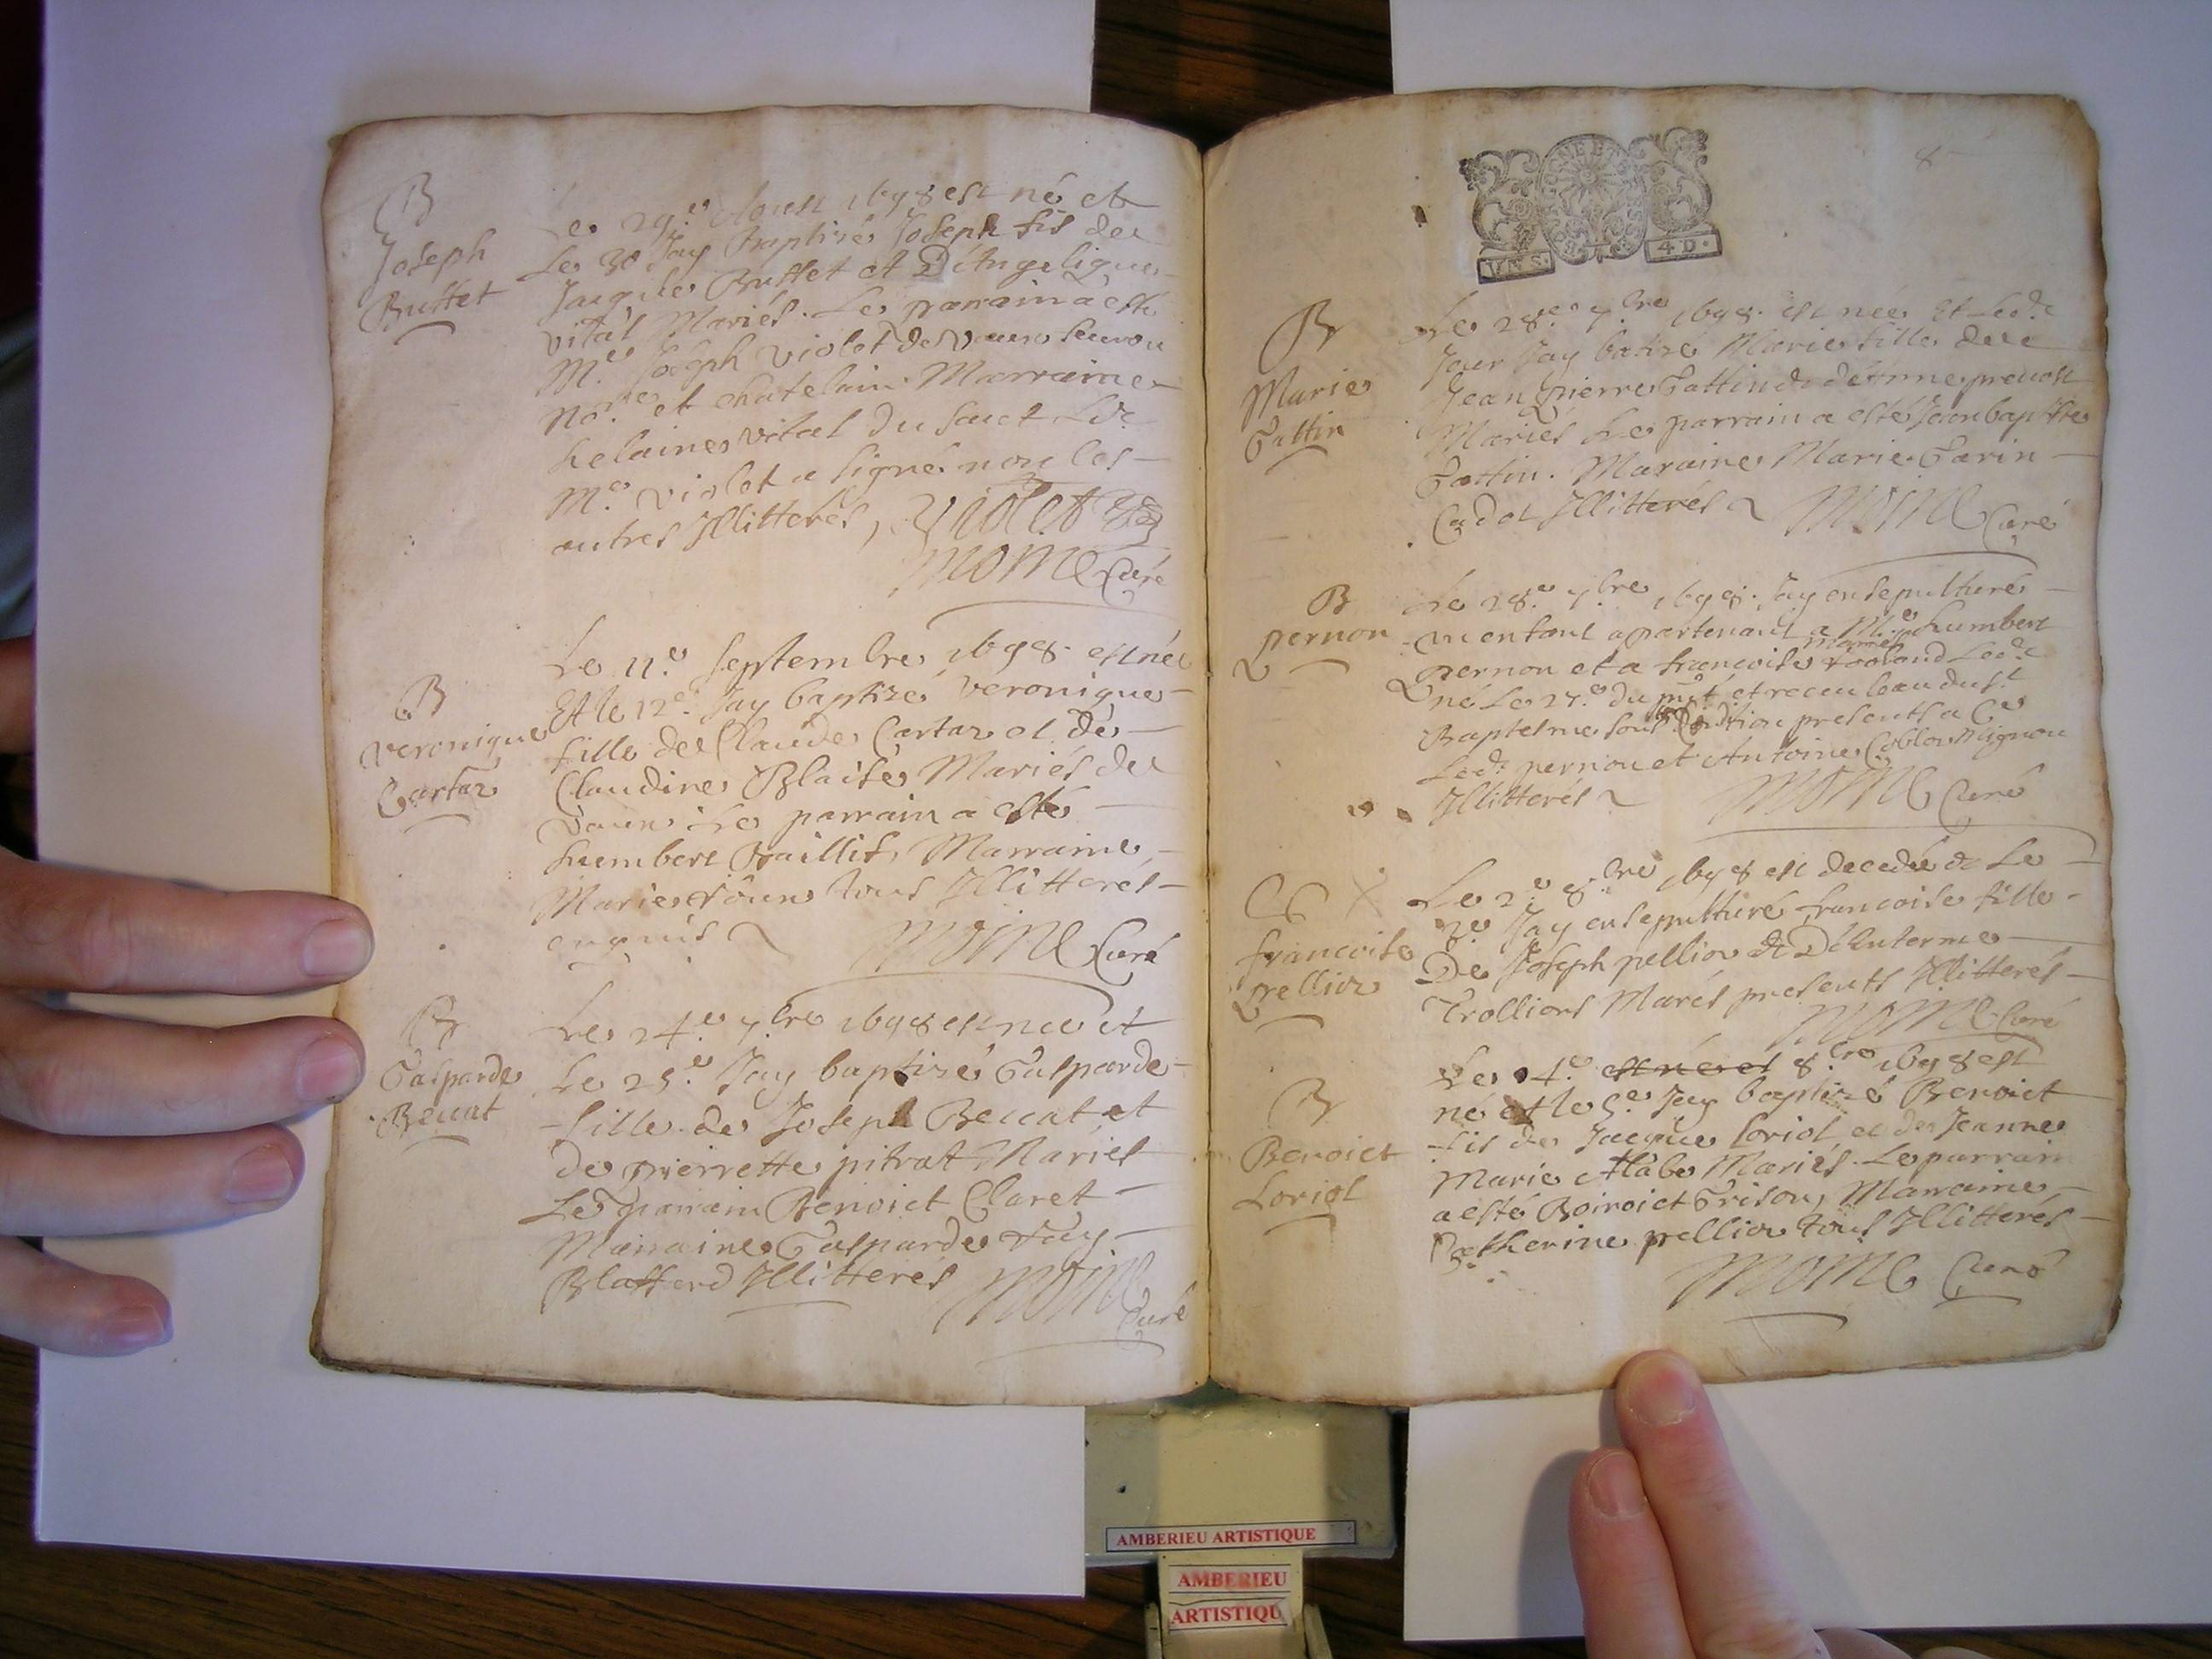 B
Joseph
Buffet
Le 29.e Aoust 1698 est né et
Le 30 Jay Baptizé Joseph fils de
Jacque Buffet et D'Angelique
vital Mariés. Le parrain a esté
M.e Joseph violet de Vaux
no.re et chatelain Marraine
helaine vital du
M.e violet a signé non les
autres Illitterés, Violet
Moine Curé
B
veronique
Cartaz
Le 11.e Septembre 1698 est née
Et le 12.e Jay baptizé veronique
fille de Claude Cartaz et de
Claudine Blaise Mariés de
Vaux Le parrain a esté
humbert Marraine
Marie tous Illitterés
enquis
Moine Curé
B
Gasparde
Beccat
Le 24.e 7.bre 1698 est née et
Le 25.e Jay baptizé Gasparde
fille de Joseph Beccat et
de pierrette pitrat Mariés
Le parrain Benoict Claret
Marraine Gasparde
Illitteres Moine
Curé
8
VN S. 4 D.
B
Marie
Gattin
Le 28.e 7.bre 1698. est née Et Led.
Jour Jay batizé Marie fille de
Jean pierre Gattin & d'Anne prevost
Mariés Le parrain a esté Jean baptiste
Gattin. Maraine Marie Garin
Cadot Illitterés Moine Curé
B
pernon
Le 28.e 7.bre 1698. Jay ensepulturé
un enfant apartenant a humbert
pernon et a francoise Led.
né Le 27.e du et receu leau du st
Baptesme sous Condition presents a Ce
Led. pernon et Antoine Mignon
Illitterés Moine Curé
francoise
pellioz
Le 2.e 8.bre 1698 est decedée & Le
3.e Jay ensepulturé francoise fille
De Joseph pellioz &
Trolliard Mariés presents Illitterés
Moine Curé
B
Benoict
Loriol
Le 4.e est né et 8.bre 1698 est
né et le 5.e Jay baptizé Benoict
fils de Jacque loriol et de Jeanne
Marie Mariés. Le parrain
a esté Benoict Grison, Marraine
Catherine pellioz tous Illitterés
Moine Curé
AMBERIEU ARTISTIQUE
AMBERIEU
ARTISTIQU